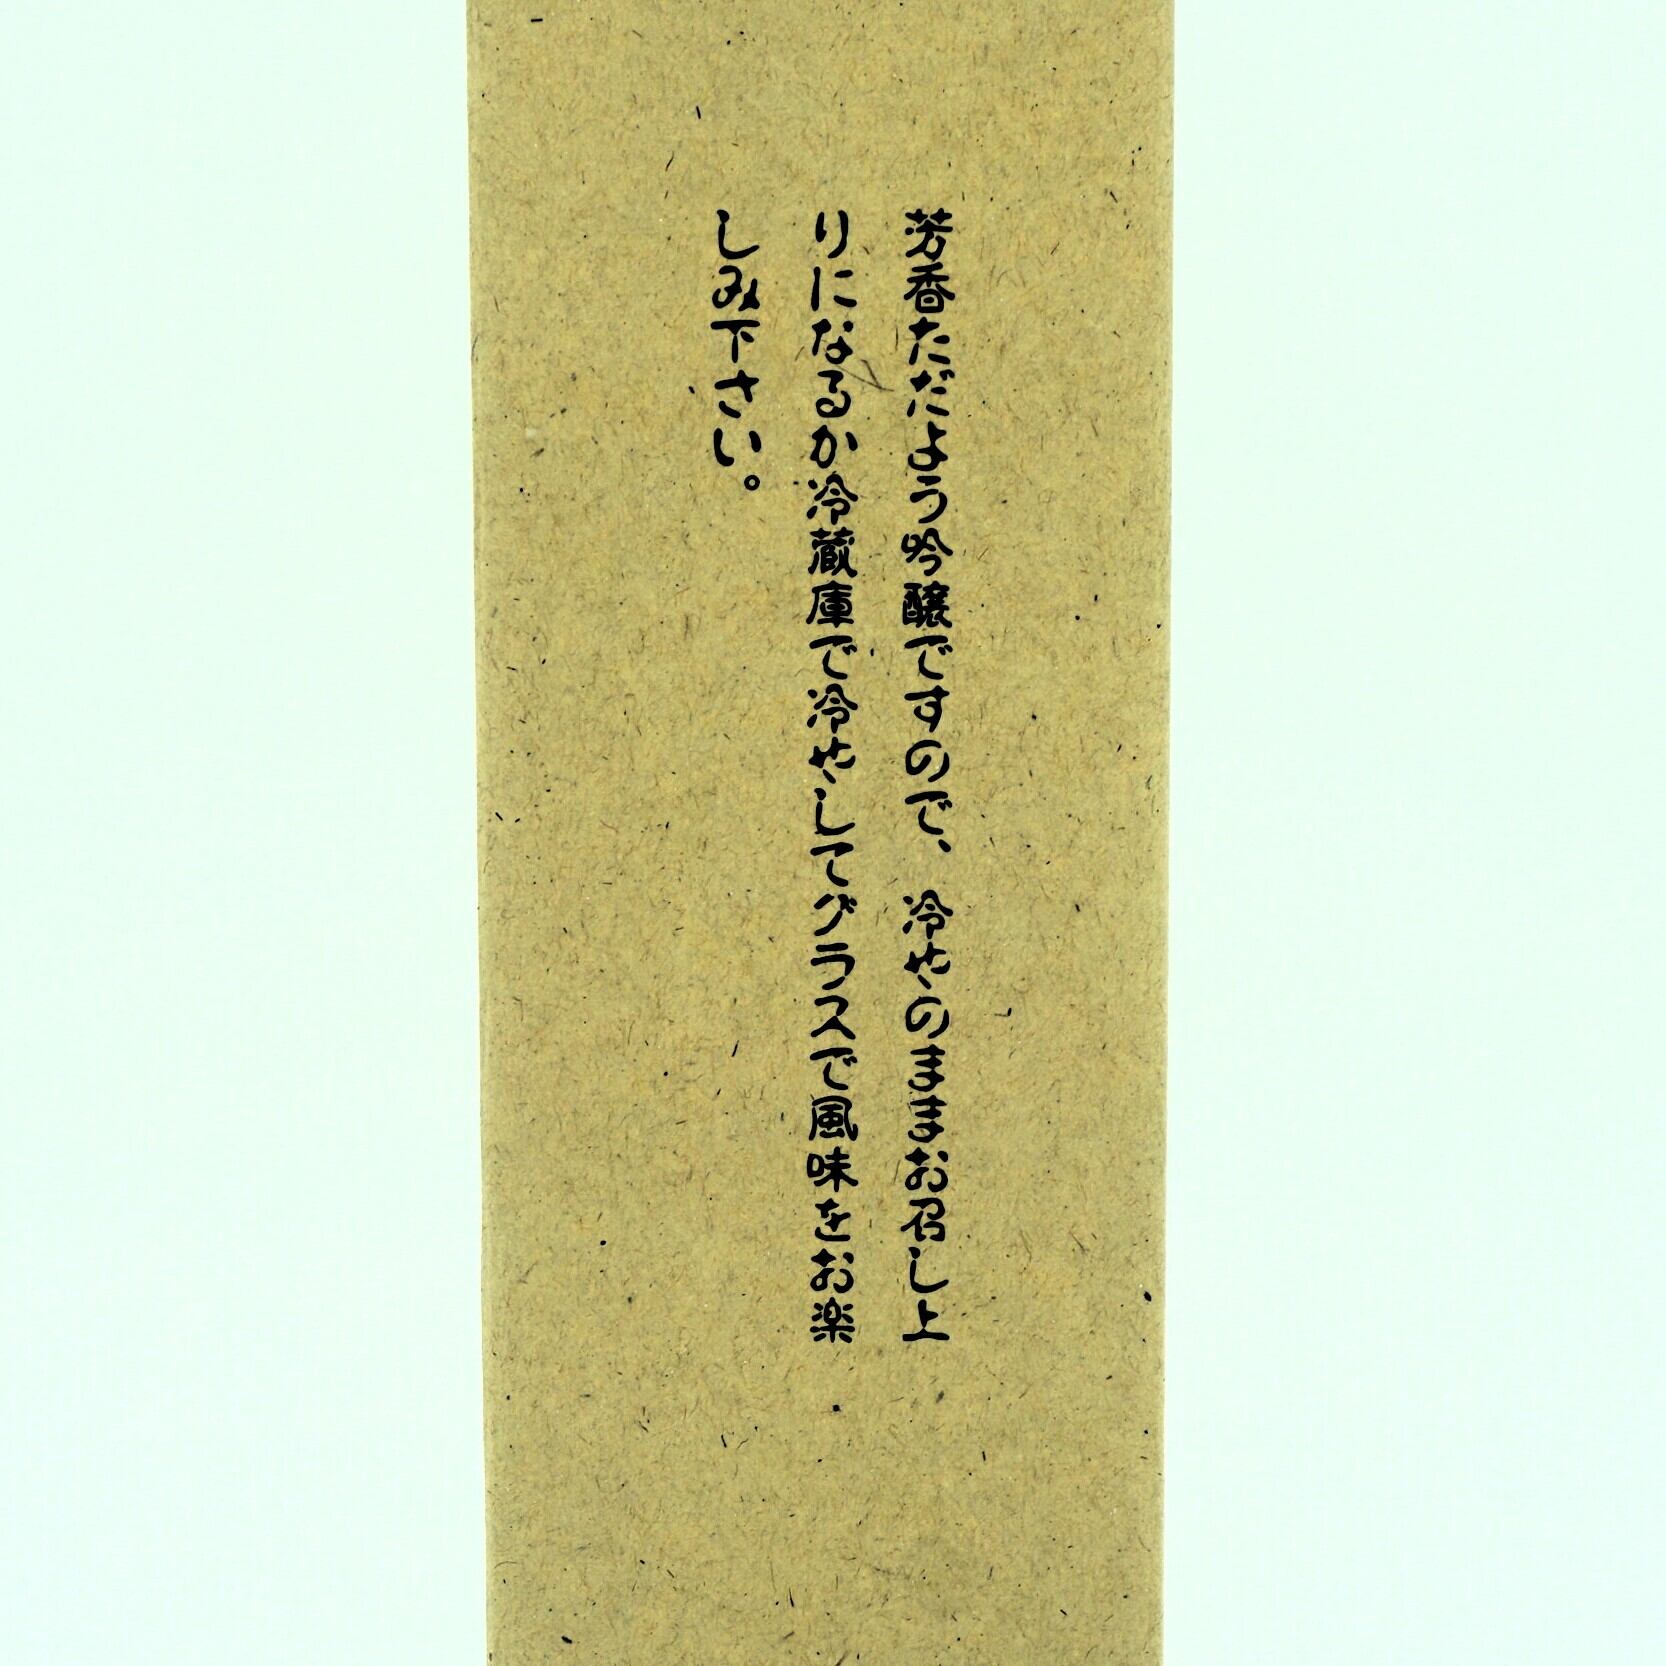 芳香ただよう吟醸ですので、冷やのままお召し上
りになるか冷蔵庫で冷やしてグラスで風味をお楽
しみ下さい。